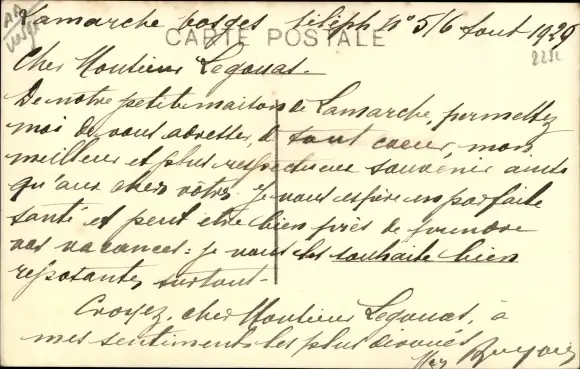 Lamarche Vosges téléph n° 5/6 Aout 1929
CARTE POSTALE
Cher Monsieur Legouas.
De notre petite maison de Lamarche, permettez
moi de vous adresser, de tout coeur, mon
meilleur et plus respectueux souvenir ainsi
qu'aux chers vôtres. Je vous espère en parfaite
santé et peut etre bien près de prendre
vos vacances : je vous les souhaite bien
reposantes, surtout.
Croyez, cher Monsieur Legouas, à
mes sentiments les plus dévoués